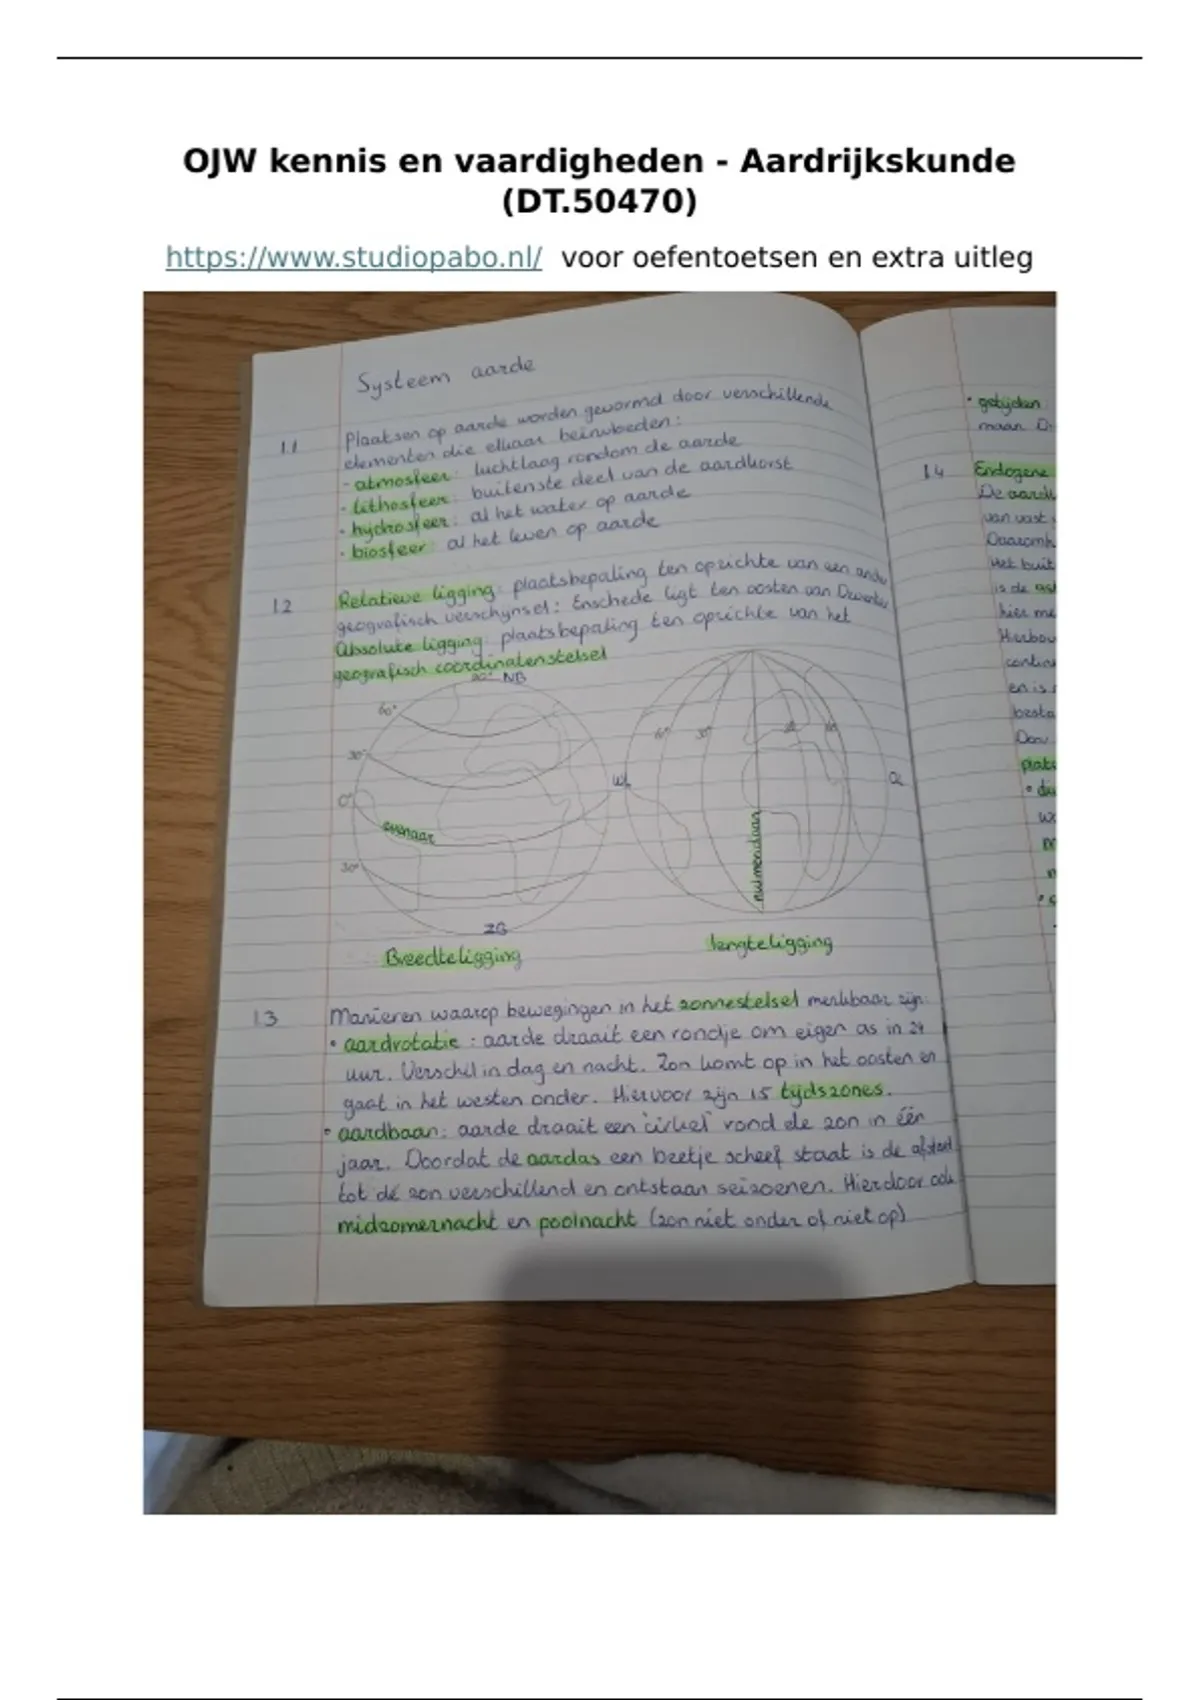 OJW kennis en vaardigheden - Aardrijkskunde
(DT.50470)
https://www.studiopabo.nl/ voor oefentoetsen en extra uitleg
Systeem aarde
1.1 Plaatsen op aarde worden gevormd door verschillende
elementen die elkaar beïnvloeden:
- atmosfeer: luchtlaag rondom de aarde
- lithosfeer: buitenste deel van de aardkorst
- hydrosfeer: al het water op aarde
- biosfeer: al het leven op aarde
1.2 Relatieve ligging: plaatsbepaling ten opzichte van een ander
geografisch verschijnsel: Enschede ligt ten oosten van Deventer
Absolute ligging: plaatsbepaling ten opzichte van het
geografisch coördinatenstelsel
90° NB
60°
30°
0°
evenaar
30°
ZB
Breedteligging
WL
60° 30° 30° 60°
OL
nulmeridiaan
lengteligging
1.3 Manieren waarop bewegingen in het zonnestelsel merkbaar zijn:
• aardrotatie: aarde draait een rondje om eigen as in 24
uur. Verschil in dag en nacht. Zon komt op in het oosten en
gaat in het westen onder. Hiervoor zijn 15 tijdszones.
• aardbaan: aarde draait een 'cirkel' rond de zon in één
jaar. Doordat de aardas een beetje scheef staat is de afstand
tot de zon verschillend en ontstaan seizoenen. Hierdoor ook
midzomernacht en poolnacht (zon niet onder of niet op)
• getijden
maan
1.4 Endogene
De
van vast
Het buit
is de
hier me
en is
plat